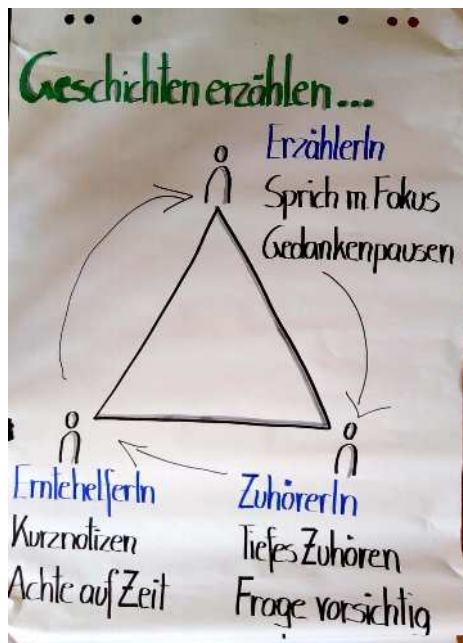 Geschichten erzählen...
ErzählerIn
Sprich m. Fokus
Gedankenpausen
ErntehelferIn
Kurznotizen
Achte auf Zeit
ZuhörerIn
Tiefes Zuhören
Frage vorsichtig